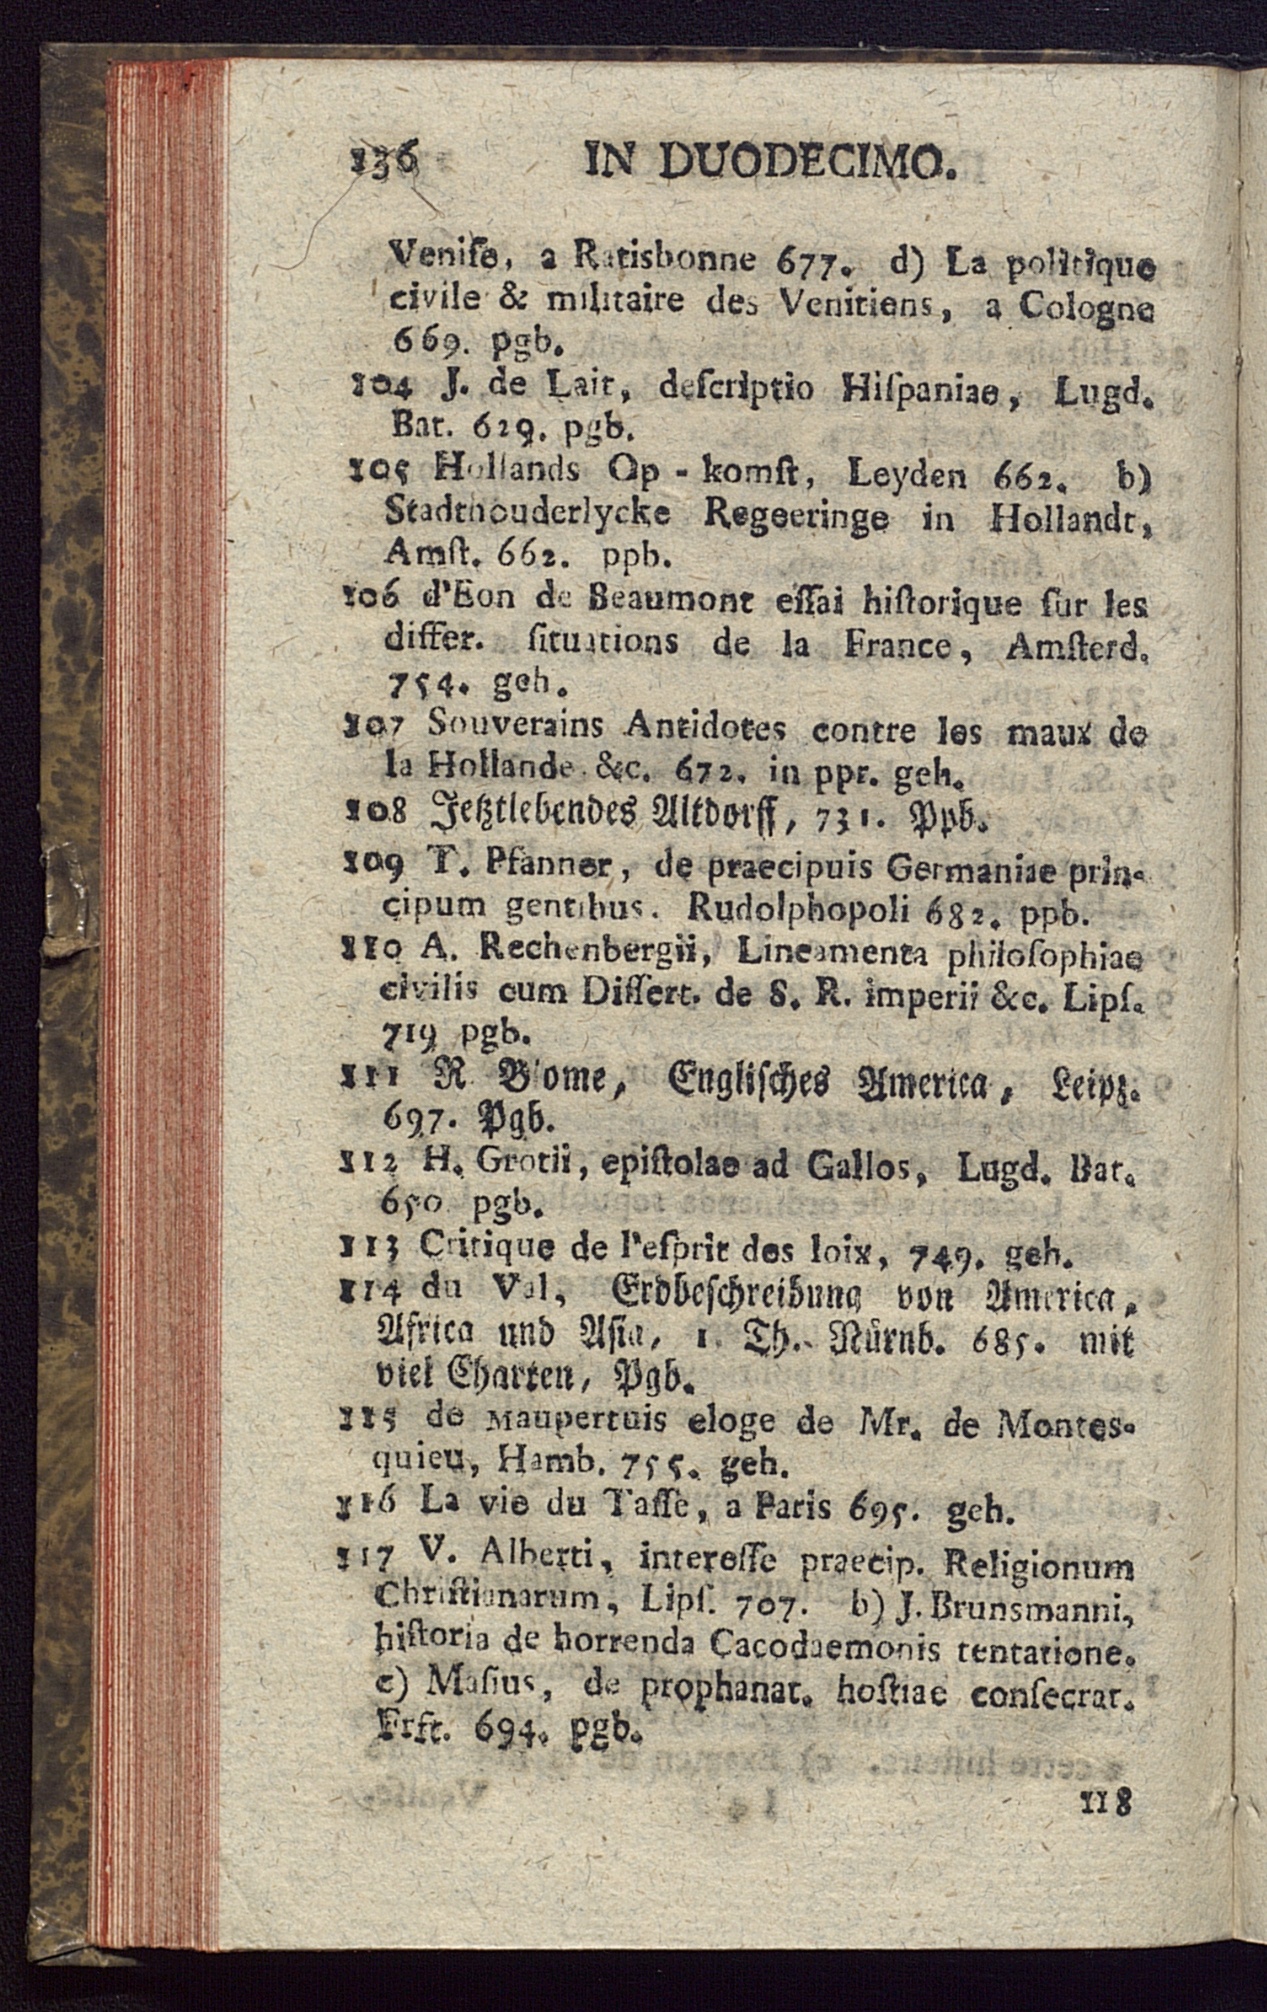 136 IN DUODECIMO.
Veniſe, a Ratisbonne 677. d) La politique
civile & militaire des Venitiens, a Cologne
669. pgb.
104 J. de Lait, deſcriptio Hiſpaniae, Lugd.
Bat. 629. pgb.
105 Hollands Op - komſt, Leyden 662. b)
Stadthouderlycke Regeeringe in Hollandt,
Amſt. 662. ppb.
106 d'Eon de Beaumont eſſai hiſtorique ſur les
differ. ſituations de la France, Amſterd.
754. geh.
107 Souverains Antidotes contre les maux de
la Hollande &c. 672. in ppr. geh.
108 Jetztlebendes Altdorff, 731. Ppb.
109 T. Pfanner, de praecipuis Germaniae prin-
cipum gentibus. Rudolphopoli 682. ppb.
110 A. Rechenbergii, Lineamenta philoſophiae
civilis cum Diſſert. de S. R. imperii &c. Lipſ.
719 pgb.
111 R Blome, Engliſches America, Leipz.
697. Pgb.
112 H. Grotii, epiſtolae ad Gallos, Lugd. Bat.
650 pgb.
113 Critique de l'eſprit des loix, 749. geh.
114 du Val, Erdbeſchreibung von America,
Africa und Aſia, 1. Th. Nürnb. 685. mit
viel Charten, Pgb.
115 de Maupertuis eloge de Mr. de Montes-
quieu, Hamb. 755. geh.
116 La vie du Taſſe, a Paris 695. geh.
117 V. Alberti, intereſſe praecip. Religionum
Chriſtianarum, Lipſ. 707. b) J. Brunsmanni,
hiſtoria de horrenda Cacodaemonis tentatione.
c) Maſius, de prophanat. hoſtiae conſecrat.
Frft. 694. pgb.
118